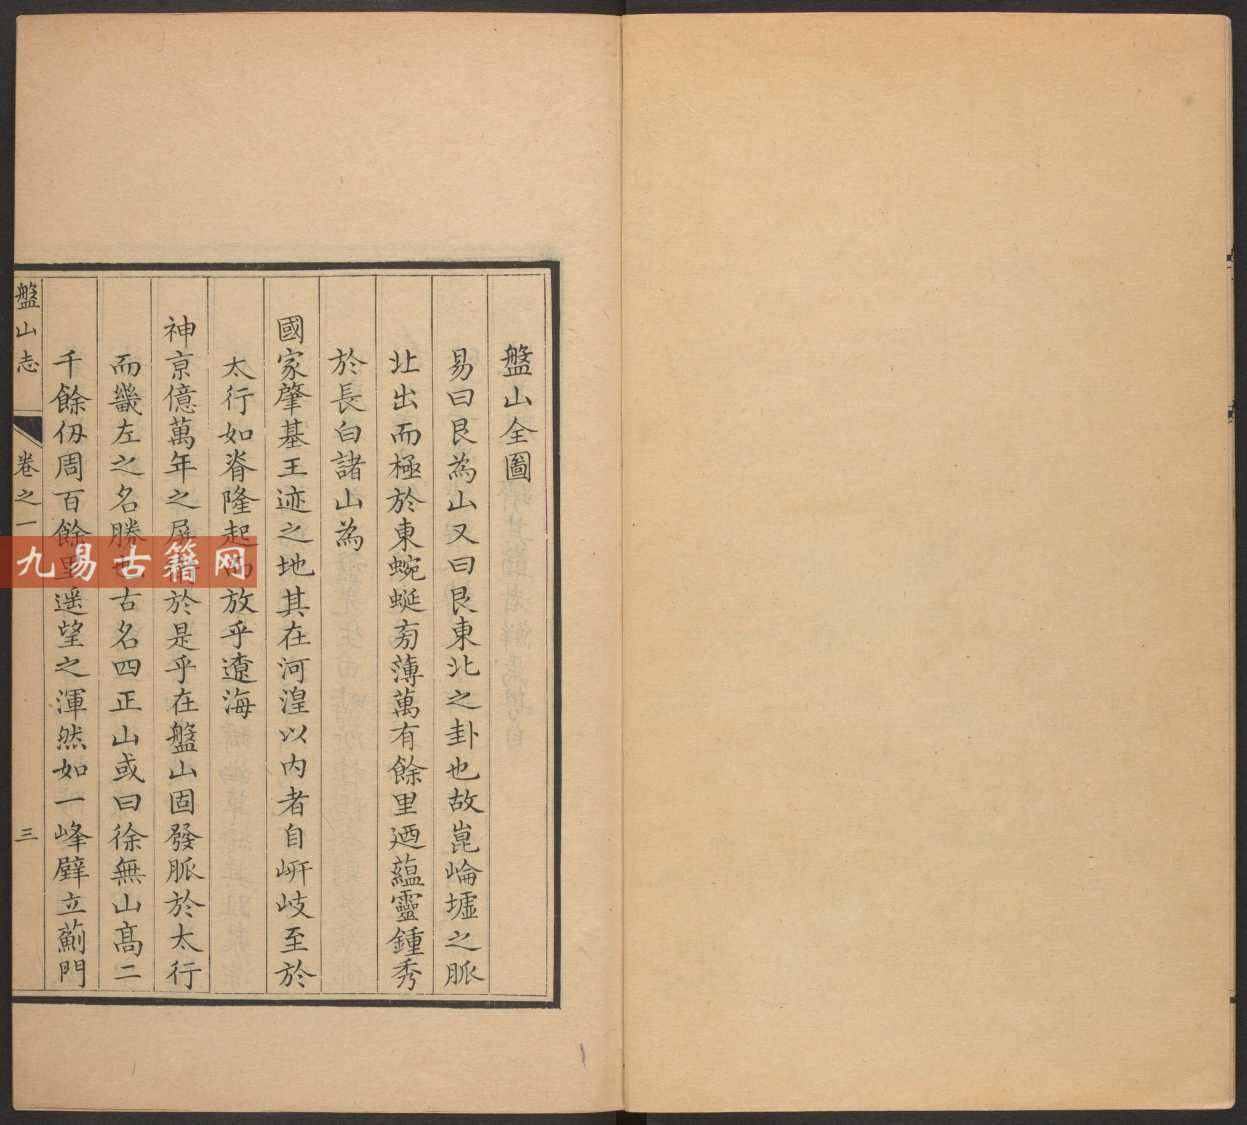 盤山全圖
易曰艮為山又曰艮東北之卦也故崑崘墟之脈
北出而極於東蜿蜒旁薄萬有餘里迺蘊靈鍾秀
於長白諸山為
國家肇基王迹之地其在河湟以内者自岍岐至於
太行如脊隆起而放乎遼海
神京億萬年之屏 於是乎在盤山固發脈於太行
而畿左之名勝也古名四正山或曰徐無山髙二
千餘仭周百餘里遥望之渾然如一峰壁立薊門
盤山志
卷之一
三
九易古籍网